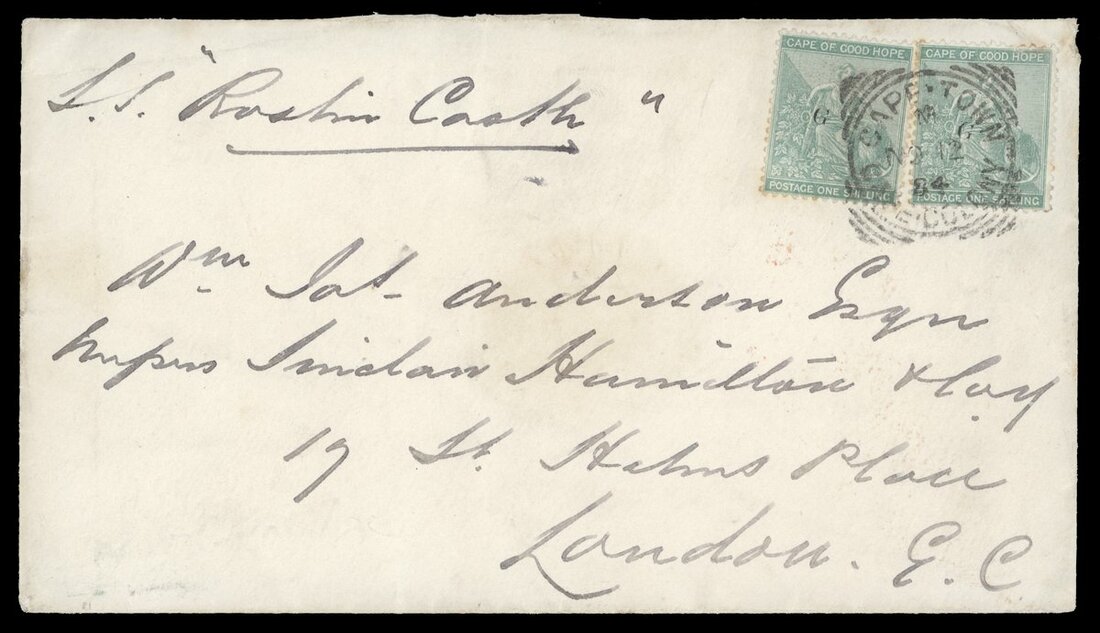 S.S. "Roslin Castle"
CAPE OF GOOD HOPE
G
POSTAGE ONE SHILLING
CAPE OF GOOD HOPE
G
POSTAGE ONE SHILLING
CAPE·TOWN
M
12
84
COLONY
Wm Jas Anderson Esqre
Messrs Sinclair Hamilton & Coy
17 St. Helens Place
London. E.C